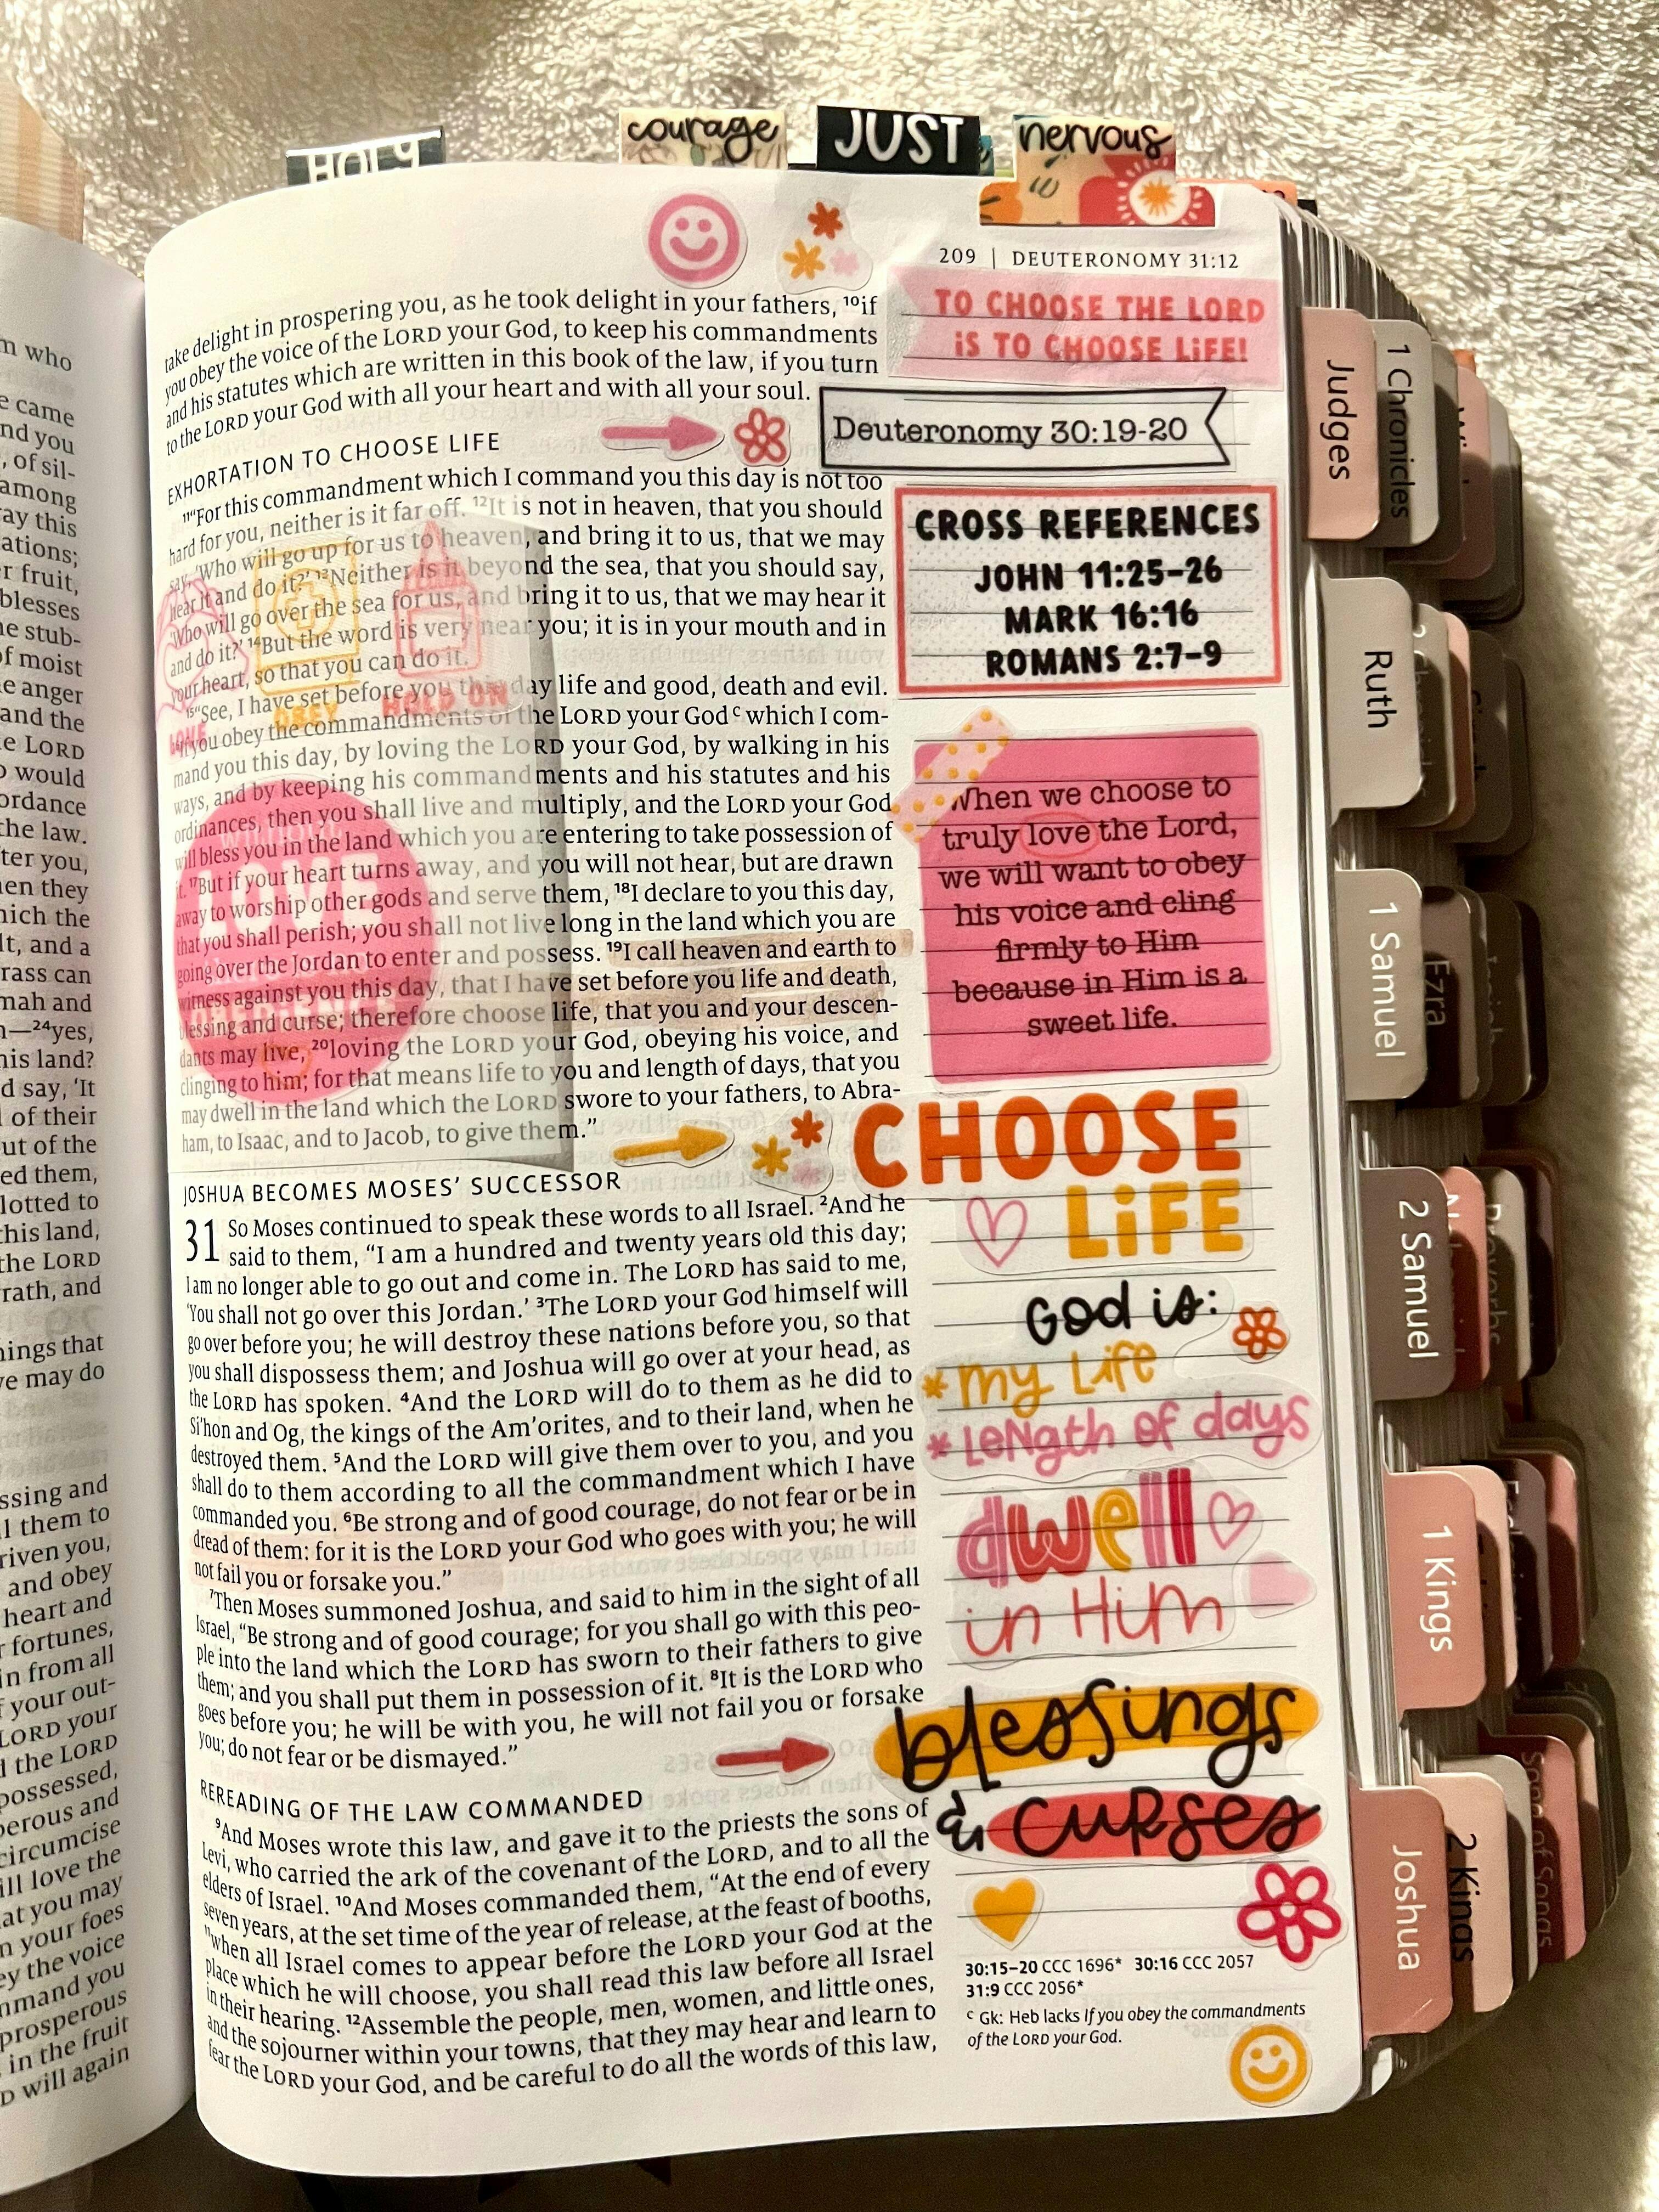 HOLY
courage
JUST
nervous
209 | DEUTERONOMY 31:12
take delight in prospering you, as he took delight in your fathers, ¹⁰if
you obey the voice of the LORD your God, to keep his commandments
and his statutes which are written in this book of the law, if you turn
to the LORD your God with all your heart and with all your soul.
EXHORTATION TO CHOOSE LIFE
¹¹“For this commandment which I command you this day is not too
hard for you, neither is it far off. ¹²It is not in heaven, that you should
say, ‘Who will go up for us to heaven, and bring it to us, that we may
hear it and do it?’ ¹³Neither is it beyond the sea, that you should say,
‘Who will go over the sea for us, and bring it to us, that we may hear it
and do it?’ ¹⁴But the word is very near you; it is in your mouth and in
your heart, so that you can do it.
¹⁵“See, I have set before you this day life and good, death and evil.
¹⁶If you obey the commandments of the LORD your Godᶜ which I com-
mand you this day, by loving the LORD your God, by walking in his
ways, and by keeping his commandments and his statutes and his
ordinances, then you shall live and multiply, and the LORD your God
will bless you in the land which you are entering to take possession of
it. ¹⁷But if your heart turns away, and you will not hear, but are drawn
away to worship other gods and serve them, ¹⁸I declare to you this day,
that you shall perish; you shall not live long in the land which you are
going over the Jordan to enter and possess. ¹⁹I call heaven and earth to
witness against you this day, that I have set before you life and death,
blessing and curse; therefore choose life, that you and your descen-
dants may live, ²⁰loving the LORD your God, obeying his voice, and
clinging to him; for that means life to you and length of days, that you
may dwell in the land which the LORD swore to your fathers, to Abra-
ham, to Isaac, and to Jacob, to give them.”
LOVE
OBEY
HOLD ON
JOSHUA BECOMES MOSES’ SUCCESSOR
31 So Moses continued to speak these words to all Israel. ²And he
said to them, “I am a hundred and twenty years old this day;
I am no longer able to go out and come in. The LORD has said to me,
‘You shall not go over this Jordan.’ ³The LORD your God himself will
go over before you; he will destroy these nations before you, so that
you shall dispossess them; and Joshua will go over at your head, as
the LORD has spoken. ⁴And the LORD will do to them as he did to
Si′hon and Og, the kings of the Am′orites, and to their land, when he
destroyed them. ⁵And the LORD will give them over to you, and you
shall do to them according to all the commandment which I have
commanded you. ⁶Be strong and of good courage, do not fear or be in
dread of them: for it is the LORD your God who goes with you; he will
not fail you or forsake you.”
⁷Then Moses summoned Joshua, and said to him in the sight of all
Israel, “Be strong and of good courage; for you shall go with this peo-
ple into the land which the LORD has sworn to their fathers to give
them; and you shall put them in possession of it. ⁸It is the LORD who
goes before you; he will be with you, he will not fail you or forsake
you; do not fear or be dismayed.”
REREADING OF THE LAW COMMANDED
⁹And Moses wrote this law, and gave it to the priests the sons of
Levi, who carried the ark of the covenant of the LORD, and to all the
elders of Israel. ¹⁰And Moses commanded them, “At the end of every
seven years, at the set time of the year of release, at the feast of booths,
¹¹when all Israel comes to appear before the LORD your God at the
place which he will choose, you shall read this law before all Israel
in their hearing. ¹²Assemble the people, men, women, and little ones,
and the sojourner within your towns, that they may hear and learn to
fear the LORD your God, and be careful to do all the words of this law,
TO CHOOSE THE LORD
iS TO CHOOSE LiFE!
Deuteronomy 30:19-20
CROSS REFERENCES
JOHN 11:25-26
MARK 16:16
ROMANS 2:7-9
When we choose to
truly love the Lord,
we will want to obey
his voice and cling
firmly to Him
because in Him is a
sweet life.
CHOOSE
LiFE
God is:
* my Life
* Length of days
dwell
in Him
blessings
& curses
30:15–20 CCC 1696* 30:16 CCC 2057
31:9 CCC 2056*
ᶜ Gk: Heb lacks If you obey the commandments
of the LORD your God.
Judges
1 Chronicles
Ruth
1 Samuel
Ezra
2 Samuel
Proverbs
1 Kings
Joshua
2 Kings
Song of Songs
m who
e came
nd you
, of sil-
among
ay this
ations;
r fruit,
blesses
ne stub-
of moist
e anger
and the
e LORD
would
ordance
the law.
ter you,
hen they
hich the
lt, and a
rass can
mah and
n—²⁴yes,
his land?
d say, ‘It
of their
ut of the
ed them,
lotted to
this land,
the LORD
rath, and
hings that
ve may do
ssing and
ll them to
riven you,
and obey
heart and
fortunes,
in from all
f your out-
LORD your
d the LORD
possessed,
perous and
circumcise
ill love the
at you may
n your foes
ey the voice
mmand you
prosperous
in the fruit
D will again